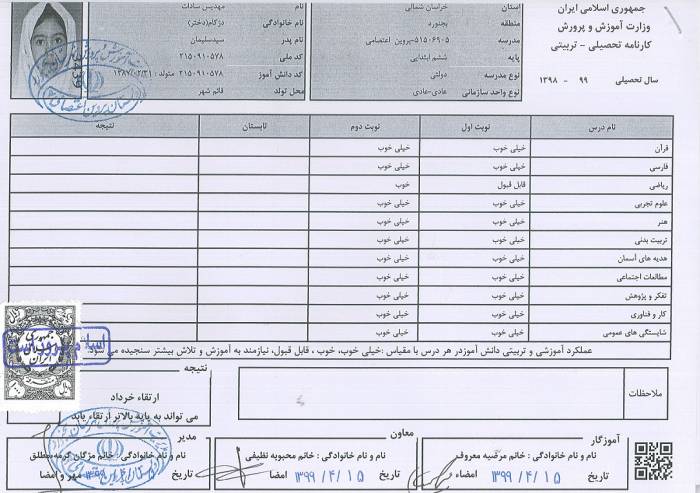 جمهوری اسلامی ایران
وزارت آموزش و پرورش
کارنامه تحصیلی - تربیتی
سال تحصیلی ۹۹ - ۱۳۹۸
استان خراسان شمالی
منطقه بجنورد
مدرسه ۵۱۵۰۶۹۰۵-پروین اعتصامی
پایه ششم ابتدایی
نوع مدرسه دولتی
نوع واحد سازمانی عادی-عادی
نام مهدیس سادات
نام خانوادگی دژکام(دختر)
نام پدر سیدسلیمان
کد ملی ۲۱۵۰۹۱۰۵۷۸
کد دانش آموز ۲۱۵۰۹۱۰۵۷۸ متولد : ۱۳۸۷/۰۲/۲۱
محل تولد قائم شهر
نام درس نوبت اول نوبت دوم تابستان نتیجه
قرآن خیلی خوب خیلی خوب
فارسی خیلی خوب خیلی خوب
ریاضی قابل قبول خوب
علوم تجربی خیلی خوب خیلی خوب
هنر خیلی خوب خیلی خوب
تربیت بدنی خیلی خوب خیلی خوب
هدیه های آسمان خیلی خوب خیلی خوب
مطالعات اجتماعی خیلی خوب خیلی خوب
تفکر و پژوهش خیلی خوب خیلی خوب
کار و فناوری خیلی خوب خیلی خوب
شایستگی های عمومی خیلی خوب خیلی خوب
عملکرد آموزشی و تربیتی دانش آموزدر هر درس با مقیاس :خیلی خوب، خوب ، قابل قبول، نیازمند به آموزش و تلاش بیشتر سنجیده می شود.
ملاحظات
نتیجه
ارتقاء خرداد
می تواند به پایه بالاتر ارتقاء یابد
جمهوری
ایران
آموزگار
نام و نام خانوادگی : خانم مرضیه معروف
تاریخ ۱۳۹۹/۴/۱۵ امضاء
معاون
نام و نام خانوادگی : خانم محبوبه نظیفی
تاریخ ۱۳۹۹/۴/۱۵ امضا
مدیر
نام و نام خانوادگی : خانم مژگان کرمه مطلق
تاریخ مهر و امضا